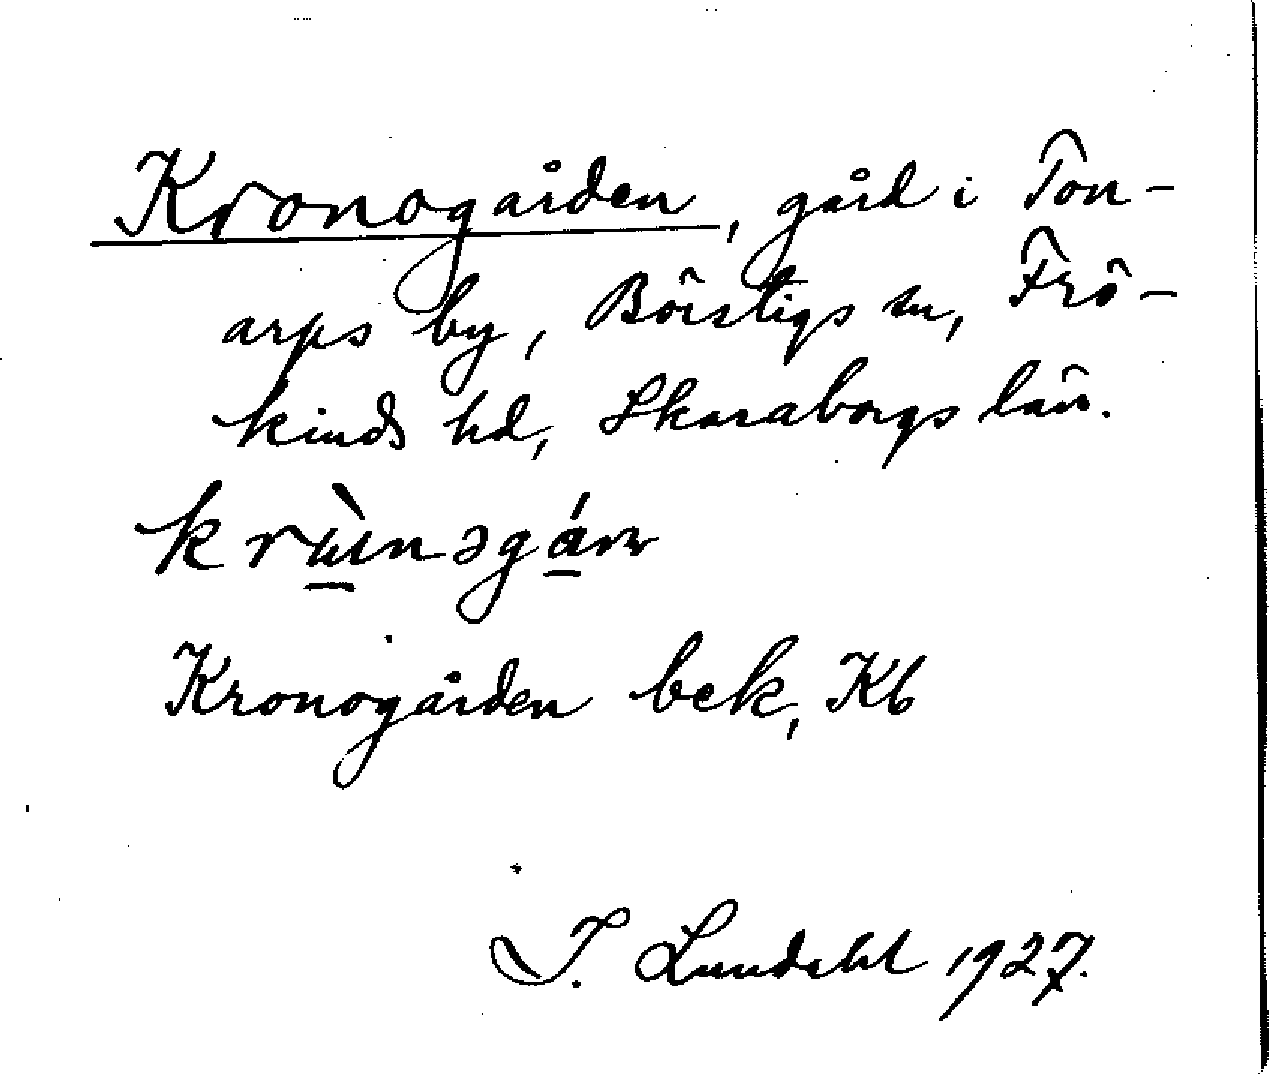 Kronogården, gård i Ton-
arps by, Börstigs sn, Frö-
kinds hd, Skaraborgs län.
Kronogården bek, Kb
1927.